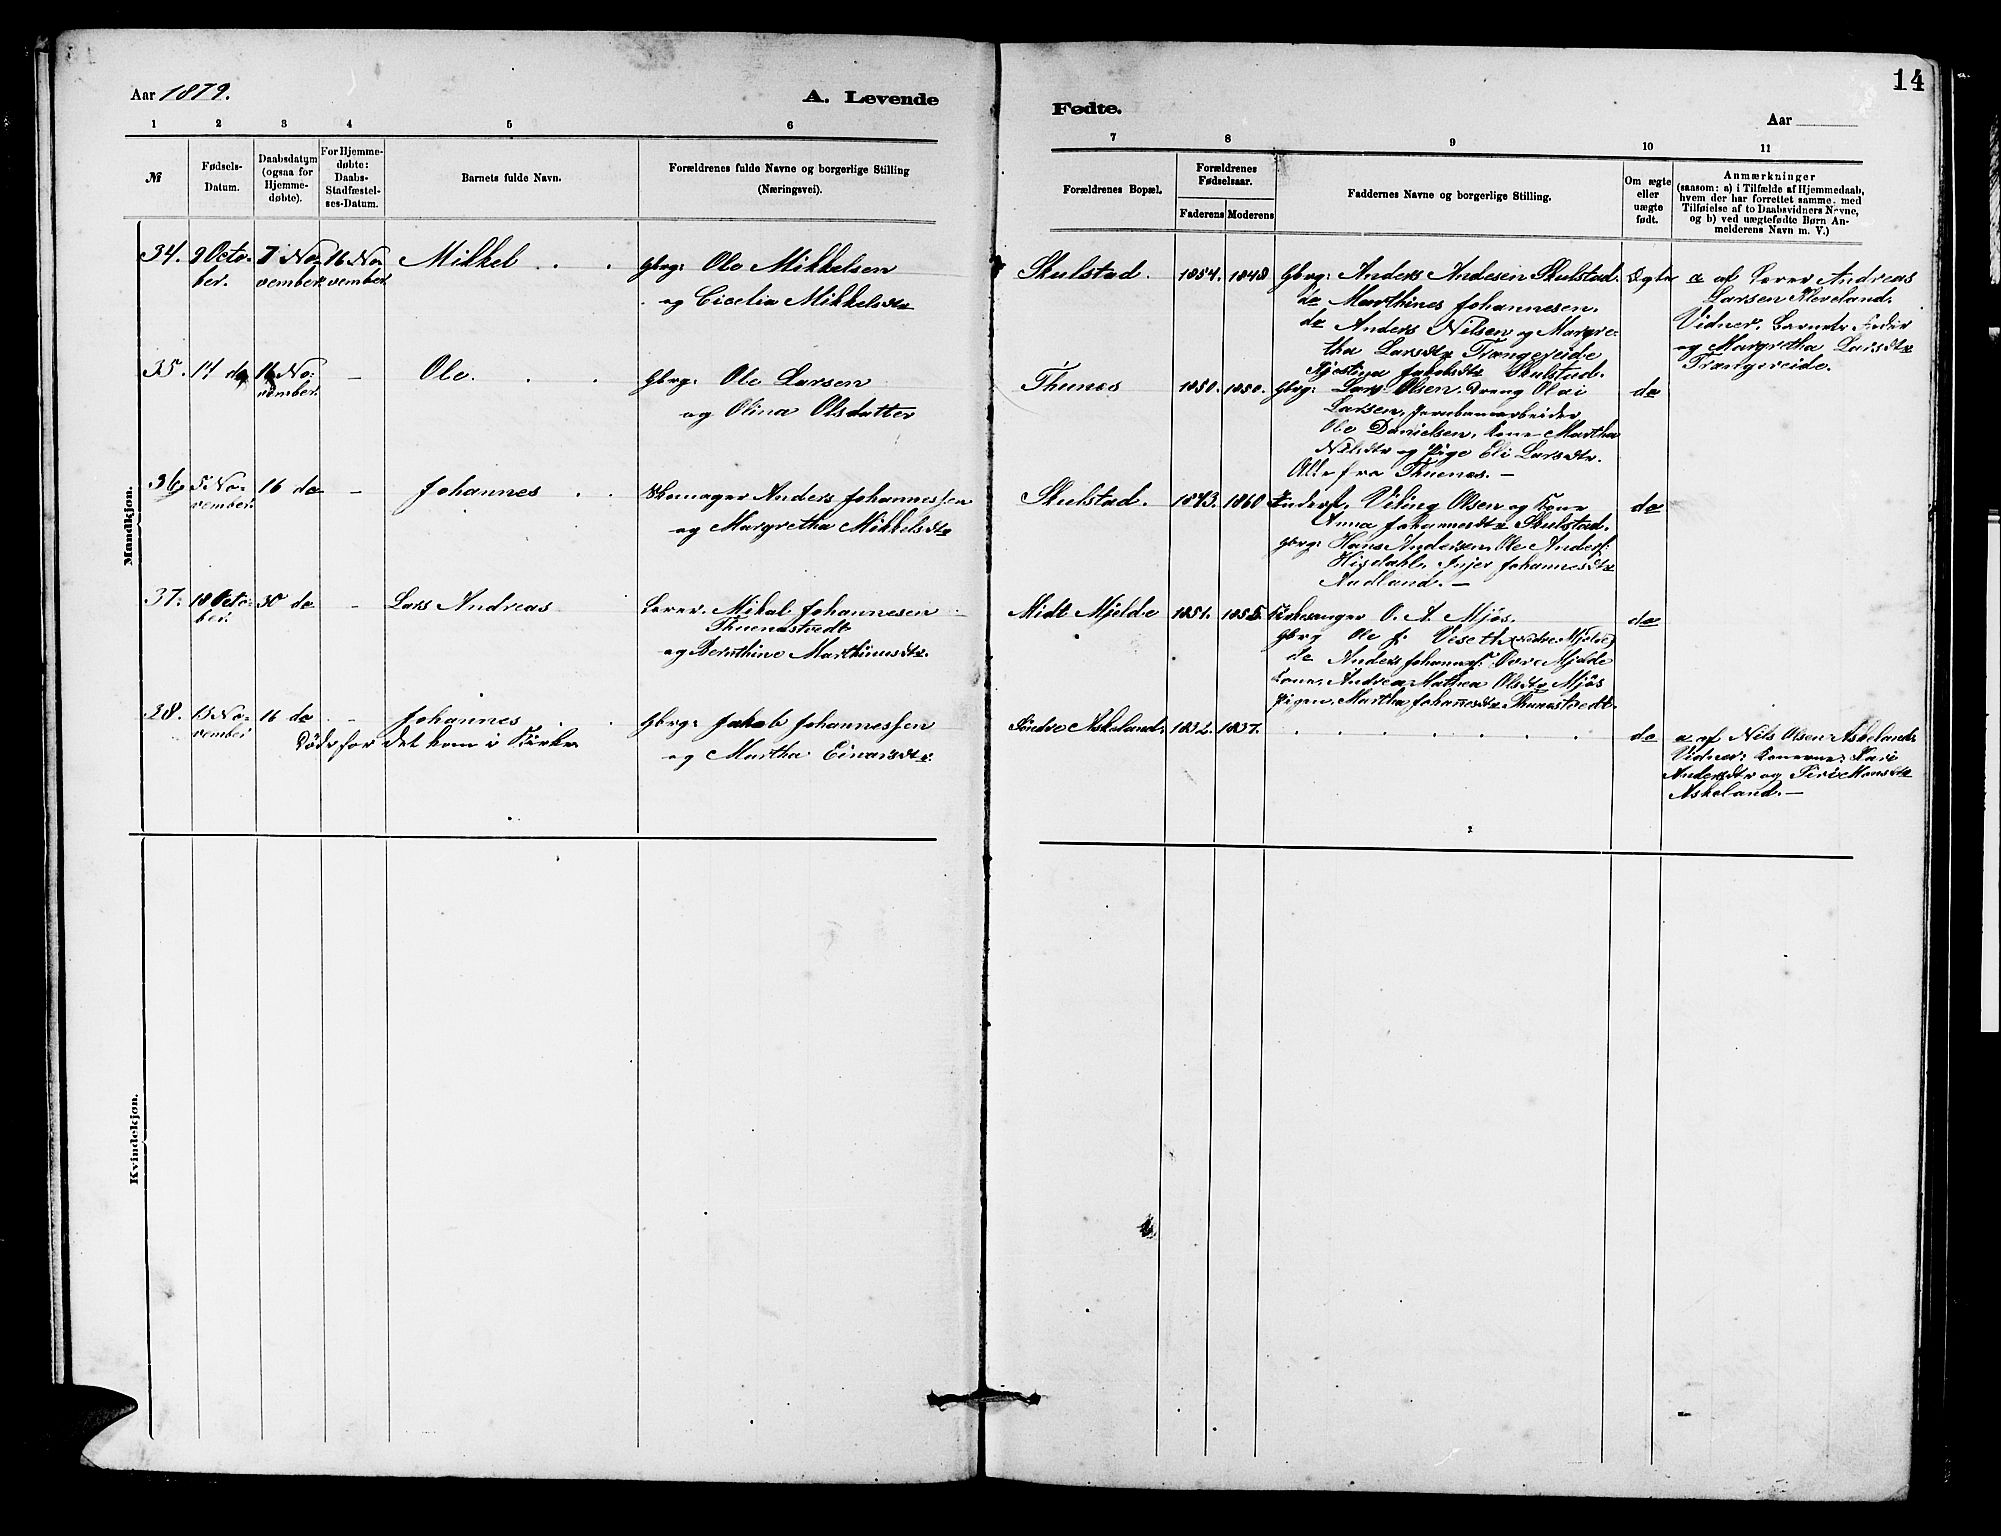 14
Aar 1879.
A. Levende
Fødte.
Aar
1 2 3 4 5 6
7 8 9 10 11
№
Fødsels-
Datum.
Daabsdatum
(ogsaa for
Hjemme-
døbte).
For Hjemme-
døbte:
Daabs-
Stadfæstel-
ses-Datum.
Barnets fulde Navn.
Forældrenes fulde Navne og borgerlige Stilling
(Næringsvei).
Forældrenes Bopæl.
Forældrenes
Fødselsaar.
Faderens Moderens
Faddernes Navne og borgerlige Stilling.
Om ægte
eller
uægte
født.
Anmærkninger
(saasom: a) i Tilfælde af Hjemmedaab,
hvem der har forrettet samme, med
Tilføielse af to Daabsvidners Navne,
og b) ved uægtefødte Børn An-
melderens Navn m. V.)
Mandkjøn.
34. 9 Octo-
ber.
7 No-
vember.
16 No-
vember.
Mikkel
Gbrg: Ole Mikkelsen
og Cicelia Mikkelsdtr
Skulstad. 1854. 1848
Gbrg: Anders Andesen Skulstad.
do Marthines Johannesen.
do Anders Nilsen og Margre-
tha Larsdtr Trængereide
Jakobsdtr Skulstad.
Ægte
a af Lærer Andreas
Larsen Kleveland.
Vidner. Barnets Fader
og Margretha Larsdtr
Trængereide.
35. 14 do 16 No-
vember. –
Ole
Gbrg: Ole Larsen
og Olina Olsdatter
Thunes 1850. 1850.
Gbrg: Lars Olsen. Dreng Olai
Larsen, Jernbanearbeider
Ole Danielsen. Kone Martha
Nilsdtr og Pige Eli Larsdtr.
Alle fra Thuenes. –
do
36. 5 No-
vember. 16 do –
Johannes
Skomager Anders Johannessen
og Margretha Mikkelsdtr
Skulstad. 1843. 1860
Viling Olsen og Kone
Anna Johannesdtr Skulstad.
Gbrg: Hans Andersen. Ole Anders:
Higdahl. Johannesdtr
Aadland. –
do
37. 18 Octo-
ber. 30 do –
Lars Andreas
Lærer. Mikal Johannesen
Thuenestvedt
og Bernthine Marthinusdtr.
Midt Mjelde 1851. 1855.
Kirkesanger O. A. Mjøs.
Gbrg Ole J. Veset (nedre Mjelde)
do Anders Johannes: Øvre Mjelde
Kone. Andrea Mathea Olsdtr Mjøs
Pigen. Martha Johannesdtr Thunestvedt.
do
38. 13 No-
vember 16 do –
Døde før det kom i Kirke
Johannes
Gbrg: Jakob Johannessen
og Martha Einarsdtr.
Søndre Askeland. 1832. 1837.
do
a af Nils Olsen Askeland.
Vidner: Konerne: Kari
Andersdtr og Siri Monsdtr
Askeland. –
Kvindekjøn.